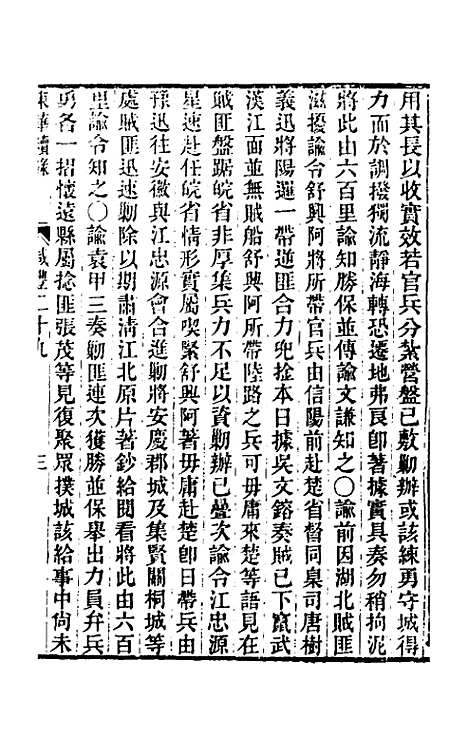 用其長以收實效若官兵分紮營盤已敷勦辦或該練勇守城得
力而於調撥獨流靜海轉恐遷地弗良卽著據實具奏勿稍拘泥
將此由六百里諭知勝保並傳諭文謙知之〇諭前因湖北賊匪
滋擾諭令舒興阿將所帶官兵由信陽前赴楚省督同臬司唐樹
義迅將隨一帶逆匪合力兜捡本日據吳文鎔奏賊已下竄武
漢江面並無賊船舒興阿所帶陸路之兵可毋庸來楚等語見在
賊匪盤踞皖省非厚集兵力不足以資勦辦已疊次諭令江忠源
星速赴任皖省情形實屬喫緊舒興阿著毋庸赴楚卽日帶兵由
豫迅往安徽與江忠源會合進勦將安慶郡城及集賢關桐城等
處賊匪迅速勦除以期肅清江北原片著鈔給閱看將此由六百
里諭令知之〇諭袁甲三奏勦匪連次獲勝並保舉出力員弁兵
勇各一招懷遠縣屬捻匪張茂等見復聚眾撲城該給事中尙未
東華續錄 咸豐二十九 三